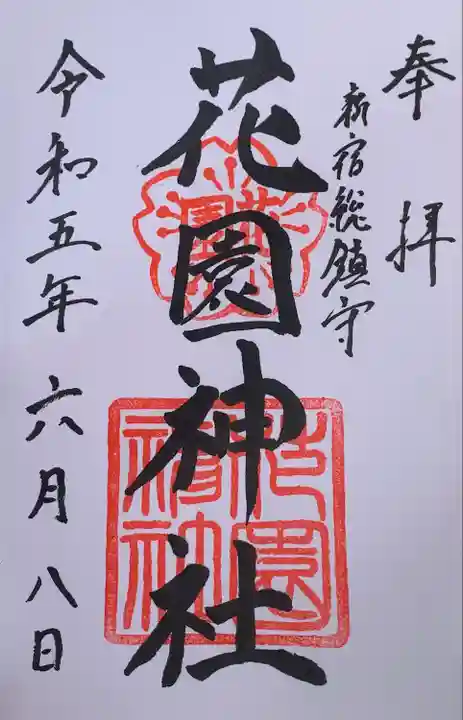 奉拝
新宿総鎮守
花園神社
令和五年六月八日
花園
花園
神社